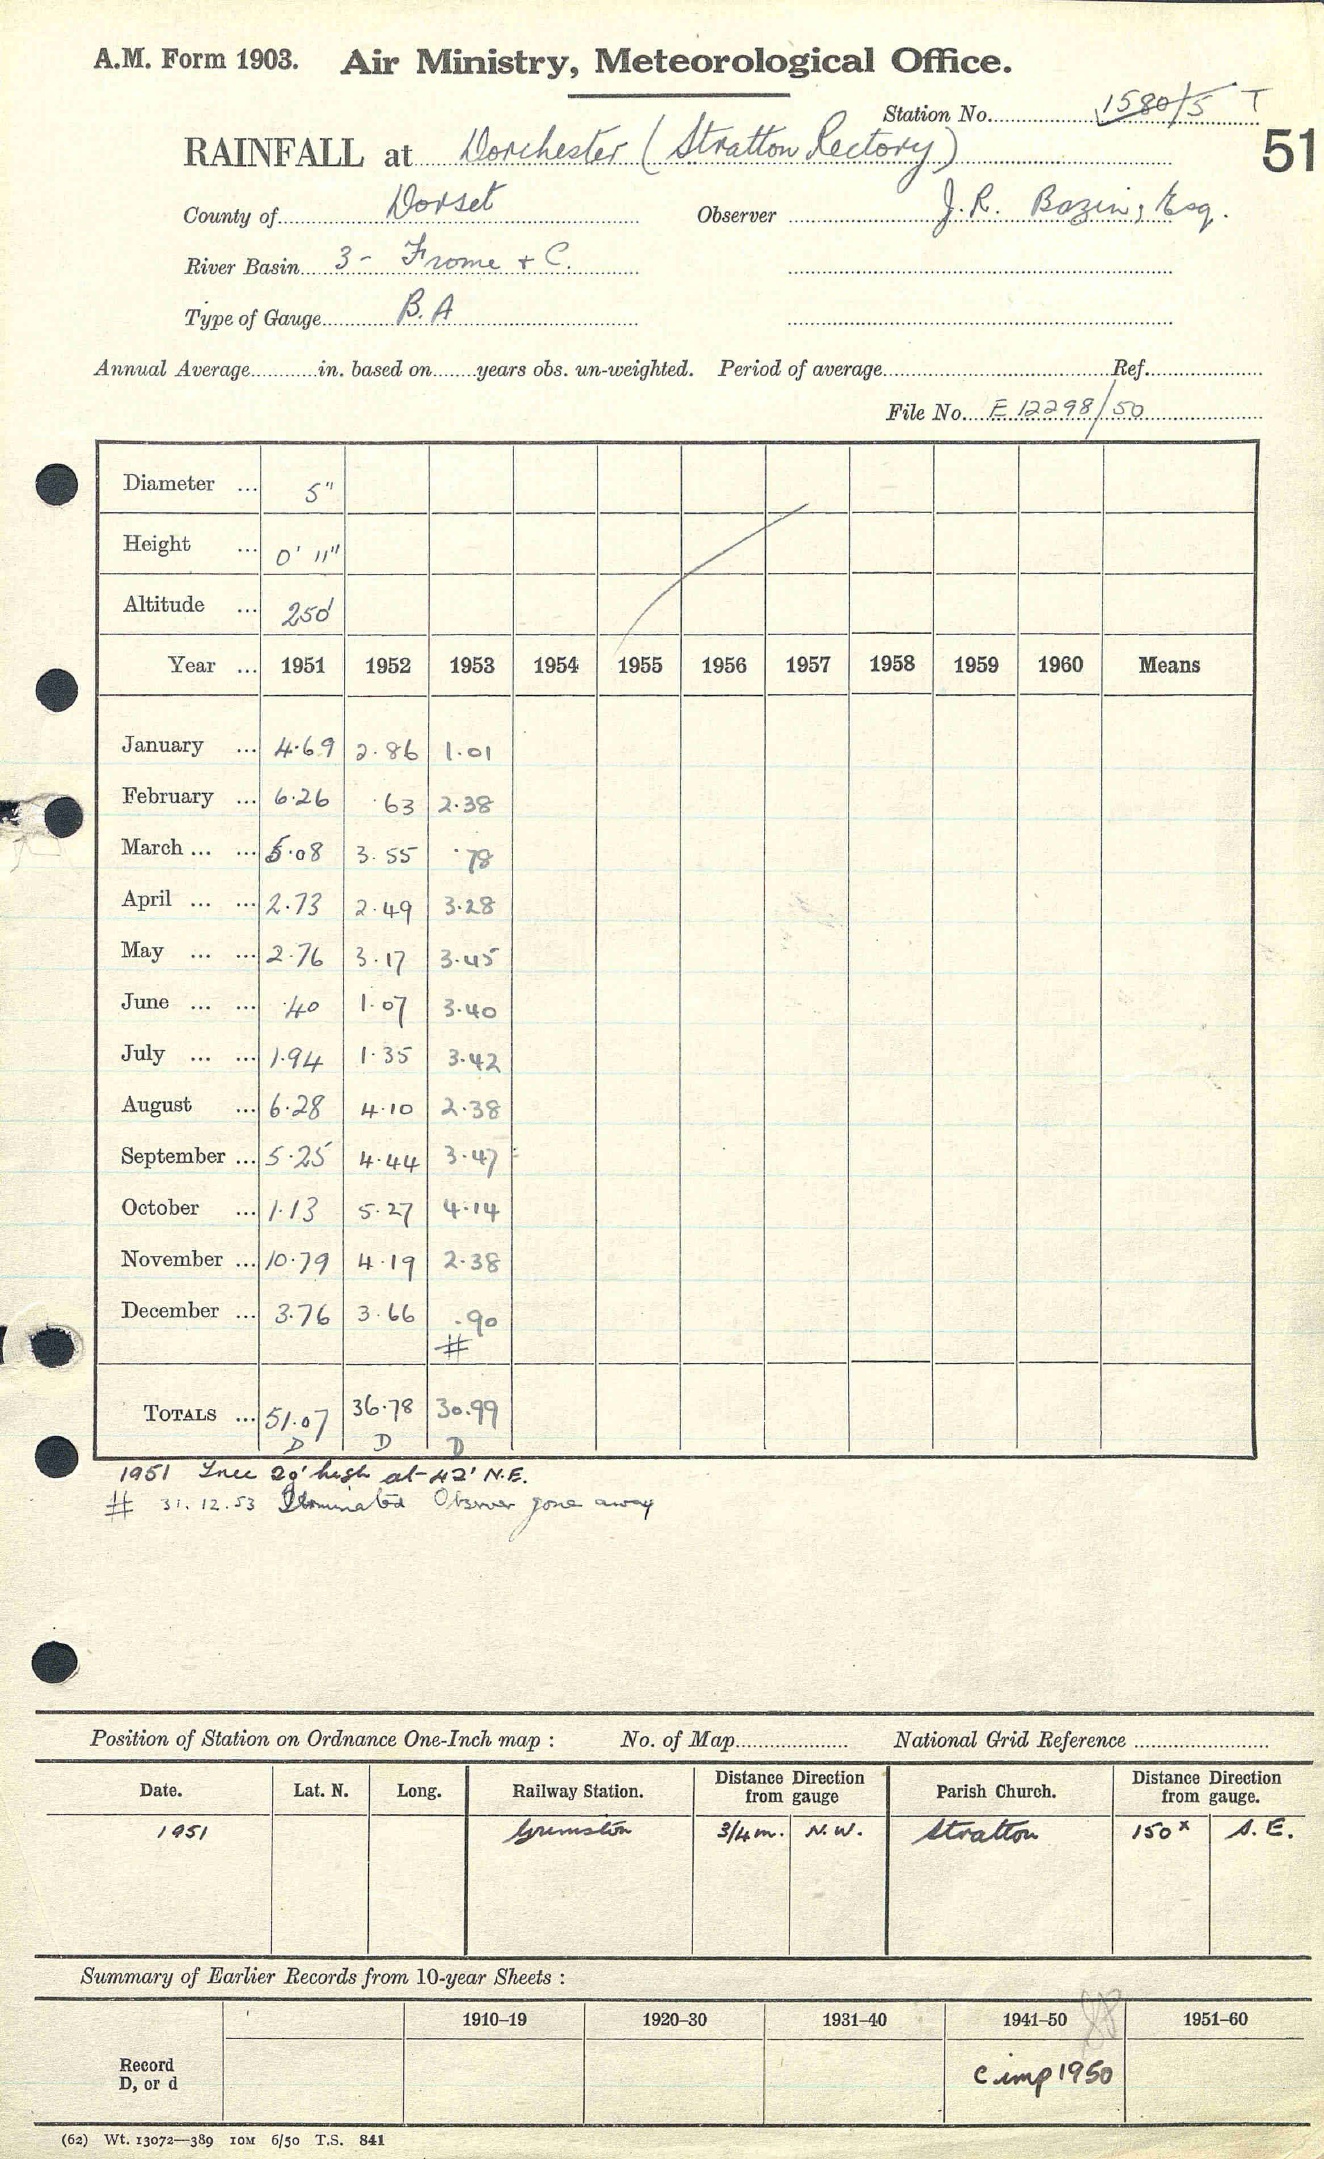 A.M. Form 1903. Air Ministry, Meteorological Office.
Station No. 1580/5 T
RAINFALL at Dorchester (Stratton Rectory)
51
County of Dorset Observer J.R. Bazin, Esq.
River Basin 3 - Frome + C.
Type of Gauge B.A
Annual Average in. based on years obs. un-weighted. Period of average Ref.
File No. E 12298/50
Diameter ... 5"
Height ... 0' 11"
Altitude ... 250'
Year ... 1951 1952 1953 1954 1955 1956 1957 1958 1959 1960 Means
January ... 4.69 2.86 1.01
February ... 6.26 .63 2.38
March ... ... 5.08 3.55 .78
April ... ... 2.73 2.49 3.28
May ... ... 2.76 3.17 3.45
June ... ... .40 1.07 3.40
July ... ... 1.94 1.35 3.42
August ... 6.28 4.10 2.38
September ... 5.25 4.44 3.47
October ... 1.13 5.27 4.14
November ... 10.79 4.19 2.38
December ... 3.76 3.66 .90
#
TOTALS ... 51.07 36.78 30.99
D D D
1951 Tree 29' high at 42' N.E.
# 31.12.53 Terminated Observer gone away
Position of Station on Ordnance One-Inch map : No. of Map National Grid Reference
Date. Lat. N. Long. Railway Station. Distance from Direction gauge Parish Church. Distance from Direction gauge.
1951 Grimston 3/4 m. N.W. Stratton 150 x S.E.
Summary of Earlier Records from 10-year Sheets :
1910–19 1920–30 1931–40 1941–50 1951–60
Record D, or d C imp 1950
(62) Wt. 13072—389 10M 6/50 T.S. 841